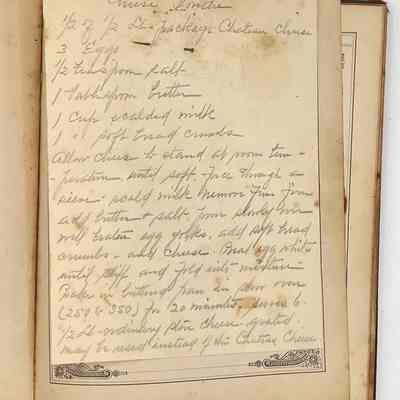 Cheese Fondue
1/2 of 1/2 Lb. package Chateau Cheese
3 Eggs
1/2 teaspoon salt
1 Tablespoon butter
1 Cup scalded milk
1 " soft bread crumbs
Allow cheese to stand at room tem -
perature until soft - force through a
sieve - scald milk remove from fire
add butter & salt pour slowly over
well beaten egg yolks, add soft bread
crumbs - and cheese. Beat egg whites
until stiff and fold into mixture -
Bake in buttered pan in slow oven
(250 to 350) for 20 minutes, serves 6.
1/2 Lb. ordinary store cheese grated
may be used instead of the Chateau Cheese